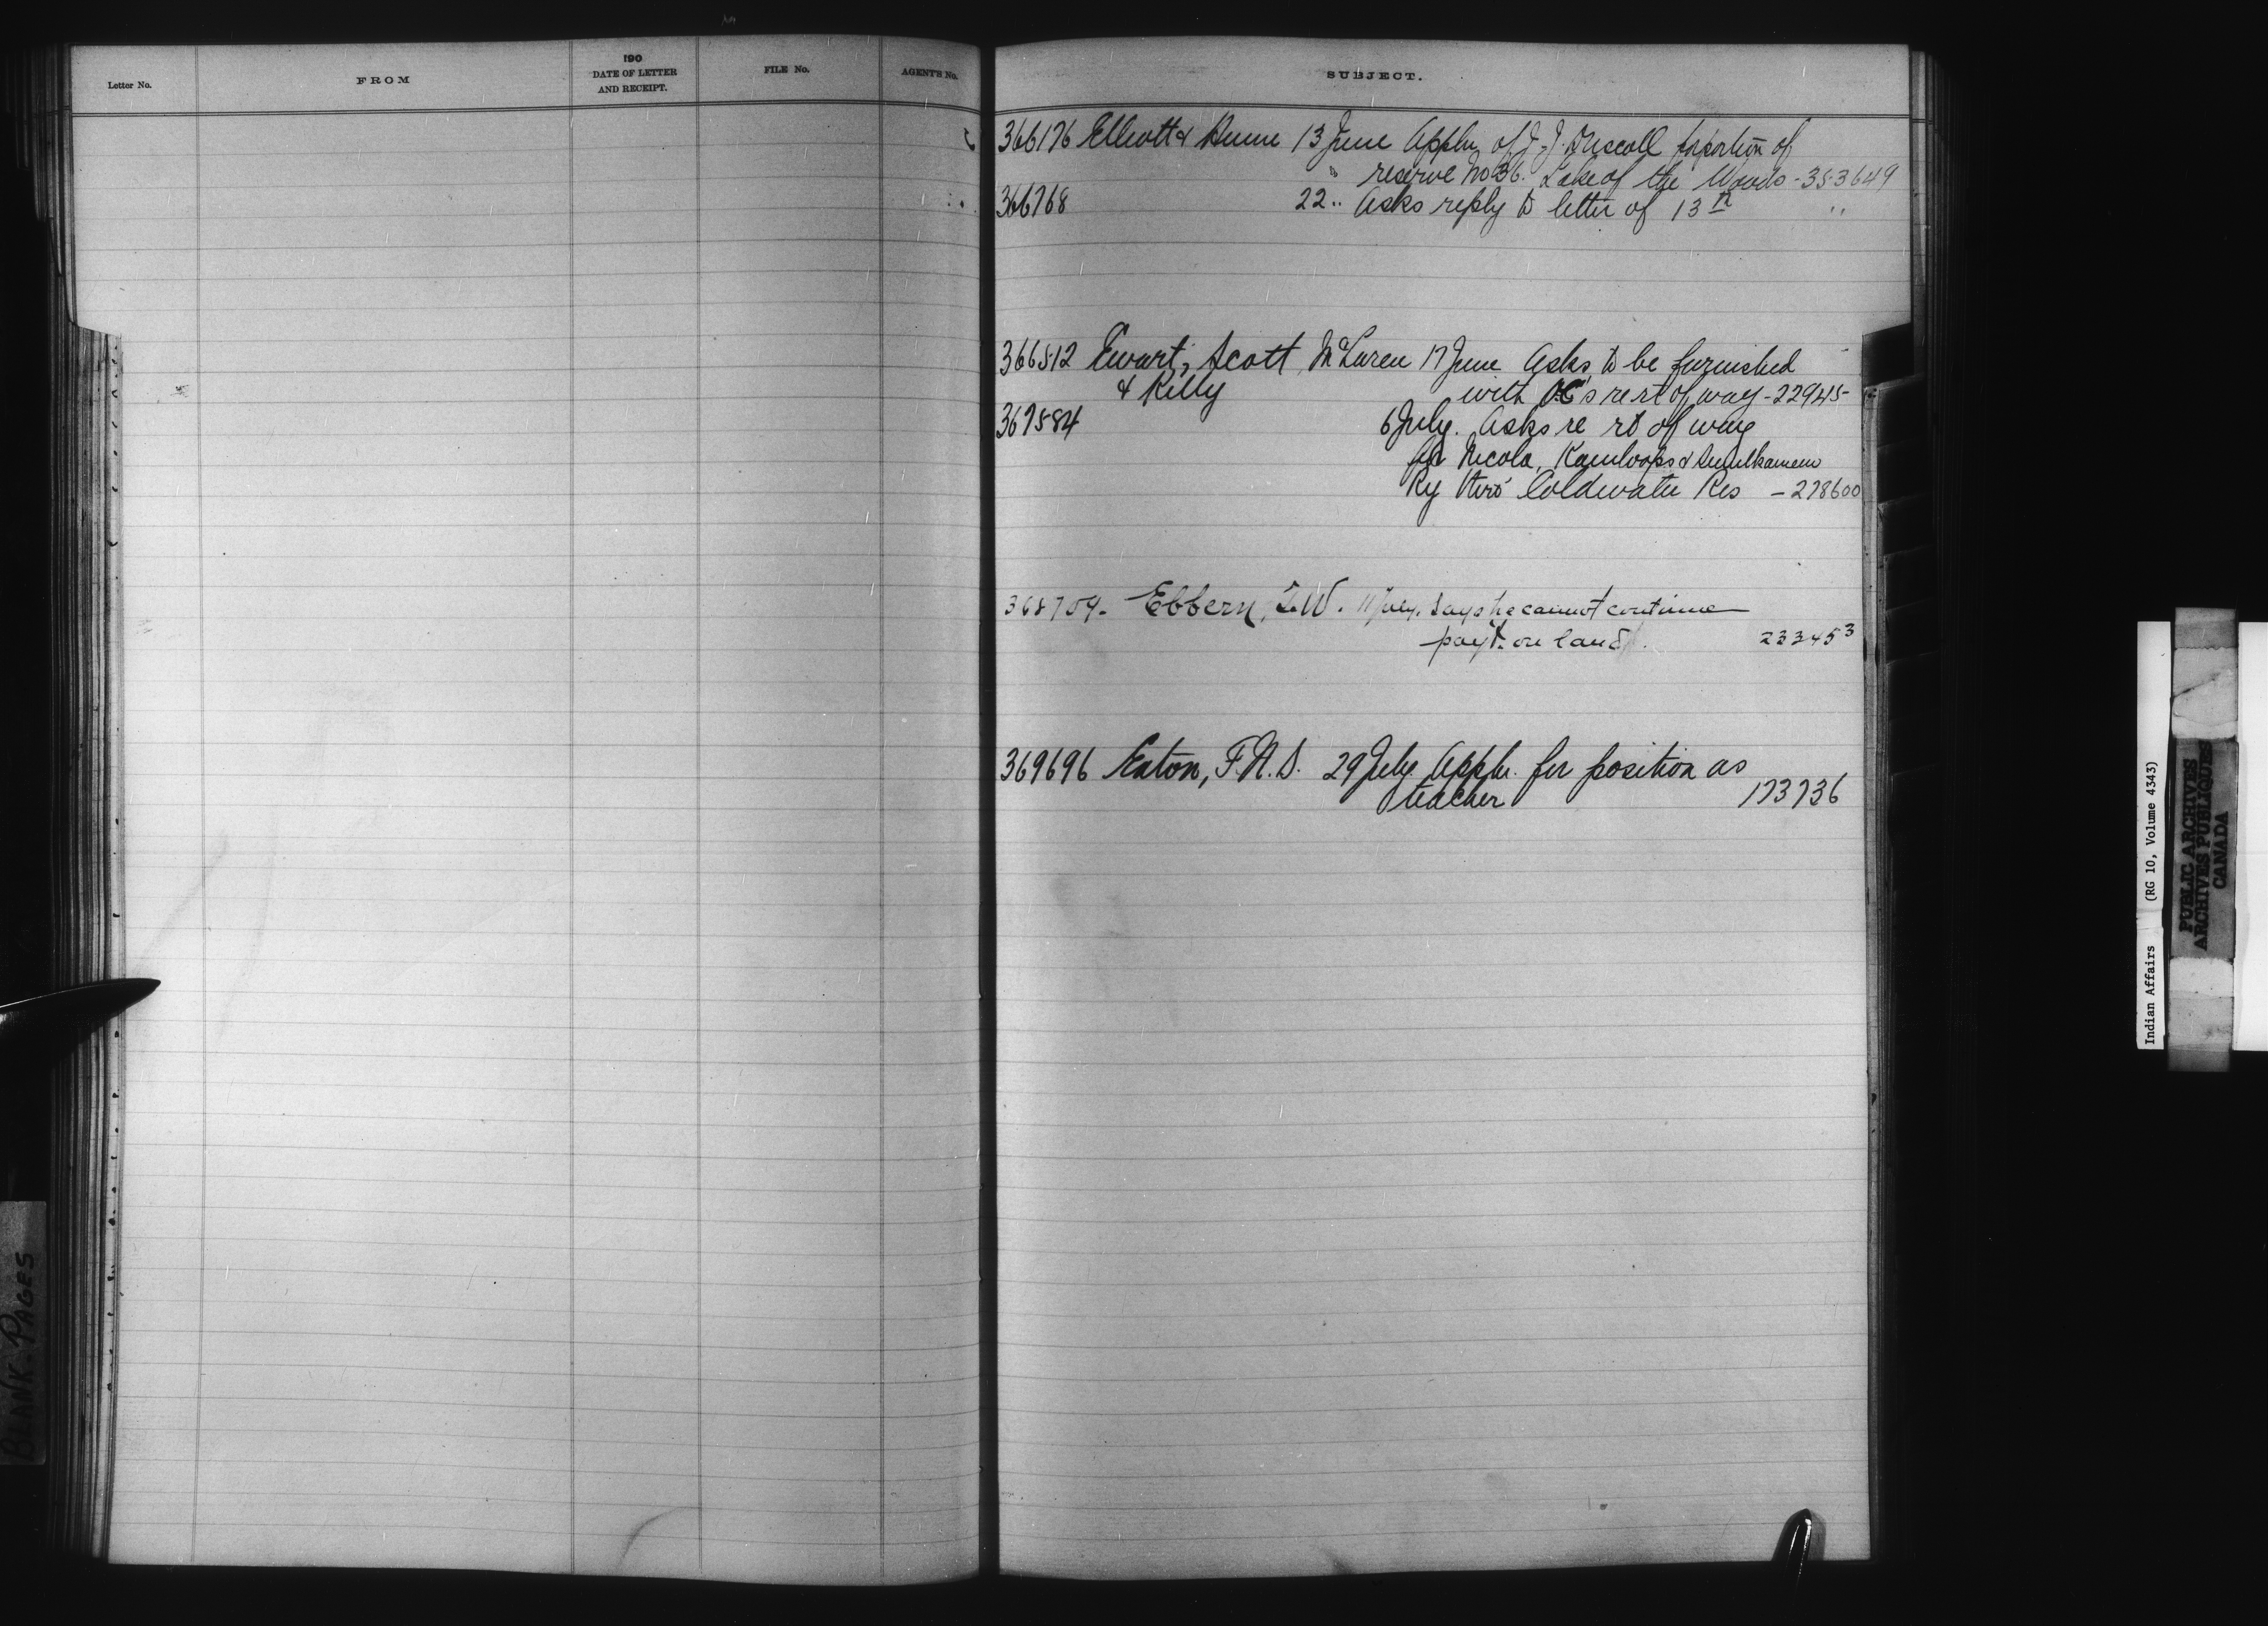 Letter No.
FROM
190
DATE OF LETTER
AND RECEIPT.
FILE No.
AGENT'S No.
SUBJECT.
366176 Elliott & Hume 13 June Appln of J. J. Driscoll for portion of
" reserve No 36. Lake of the Woods - 353649
366768 22 " Asks reply to letter of 13th "
366512 Ewart, Scott, McLaren 17 June Asks to be furnished
& Kelly with OC's re rt of way - 22945
367584 6 July. Asks re rt of way
for Nicola, Kamloops & Similkameen
Ry thro' Coldwater Res - 278600
368709 - Ebbern, T.W. 11 July. Says he cannot continue
payt. on land. 233453
369696 Eaton, F.N.S. 29 July Appln. for position as
teacher 173736
BLANK PAGES
Indian Affairs (RG 10, Volume 4343)
PUBLIC ARCHIVES
ARCHIVES PUBLIQUES
CANADA